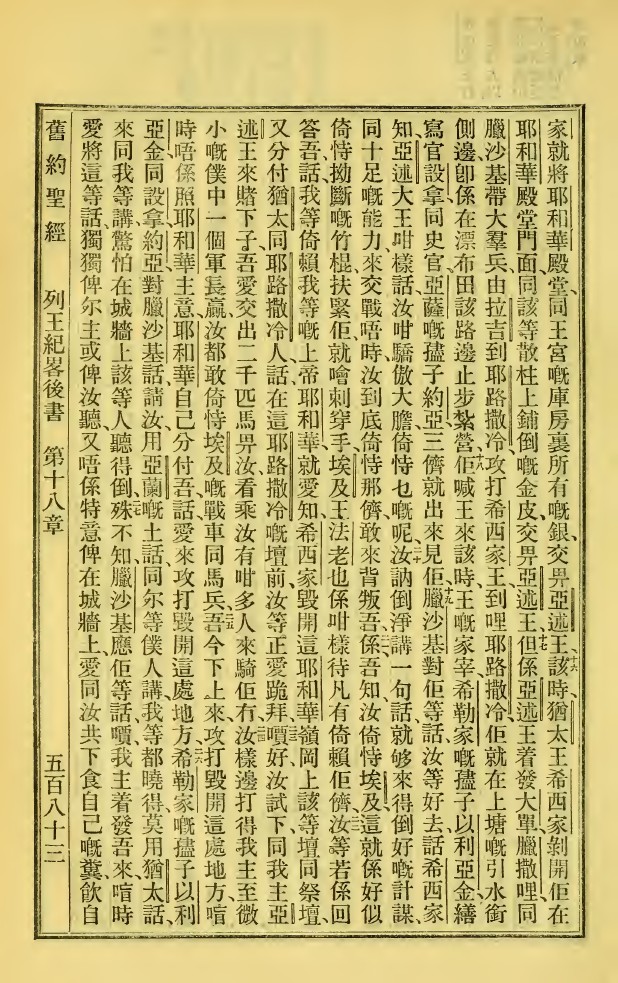 家就將耶和華殿堂、同王宮嘅庫房裏所有嘅銀、交畀亞述王、十六該時猶太王希西家剝開佢在
耶和華殿堂門面、同該等散柱上鋪倒嘅金皮、交畀亞述王、十七但係亞述王着發大單臘撒哩同
臘沙基帶大羣兵、由拉吉到耶路撒冷、攻打希西家王、到哩耶路撒冷、佢就在上塘嘅引水衖
側邊、卽係在漂布田該路邊止步紮營、十八佢喊王來、該時、王嘅家宰希勒家嘅孻子以利亞金、繕
寫官設拿、同史官亞薩嘅孻子約亞、三儕就出來見佢、十九臘沙基對佢等話、汝等好去話希西家
知、亞述大王咁樣話、汝咁驕傲大膽、倚恃乜嘅呢、二十汝訥倒淨講一句話、就够來得倒好嘅計謀、
同十足嘅能力來交戰唔、時汝到底倚恃那儕、敢來背叛吾係、二一吾知汝倚恃埃及、這就係好似
倚恃拗斷嘅竹棍、扶緊佢、就噲刺穿手、埃及王法老也係咁樣待凡有倚賴佢儕、二二汝等若係回
答吾話、我等倚賴我等嘅上帝耶和華、就愛知希西家毀開這耶和華嶺岡上該等壇同祭壇、
又分付猶太、同耶路撒冷人、話、在這耶路撒冷嘅壇前、汝等正愛跪拜嘪、二三好汝試下、同我主亞
述王來賭下子、吾愛交出二千匹馬畀汝、看乘汝有咁多人來騎佢冇、二四汝樣邊打得我主至微
小嘅僕中一個軍長贏、汝都敢倚恃埃及嘅戰車同馬兵、二五吾今下上來、攻打毀開這處地方、喧
時唔係照耶和華主意、耶和華自己分付吾話、愛來攻打毀開這處地方、二六希勒家嘅孻子以利
亞金、同設拿、約亞、對臘沙基話、請汝用亞蘭嘅土話、同尔等僕人講、我等都曉得、莫用猶太話、
來同我等講、驚怕在城牆上該等人聽得倒、二七殊不知臘沙基應佢等話、嘪、我主着發吾來、喧時
愛將這等話、獨獨俾尔主或俾汝聽、又唔係特意俾在城牆上、愛同汝共下食自己嘅糞、飲自
舊約聖經 列王紀畧後書 第十八章 五百八十三